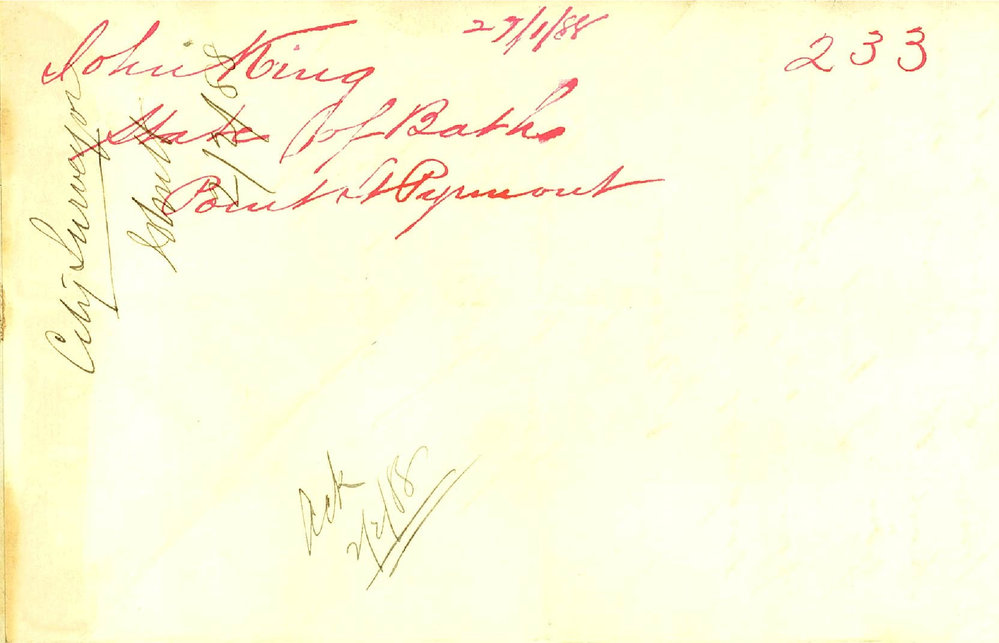 27/1/88
233
John King
State of Baths
Point St Pyrmont
City Surveyor
2/2/88
Ack
2/2/88